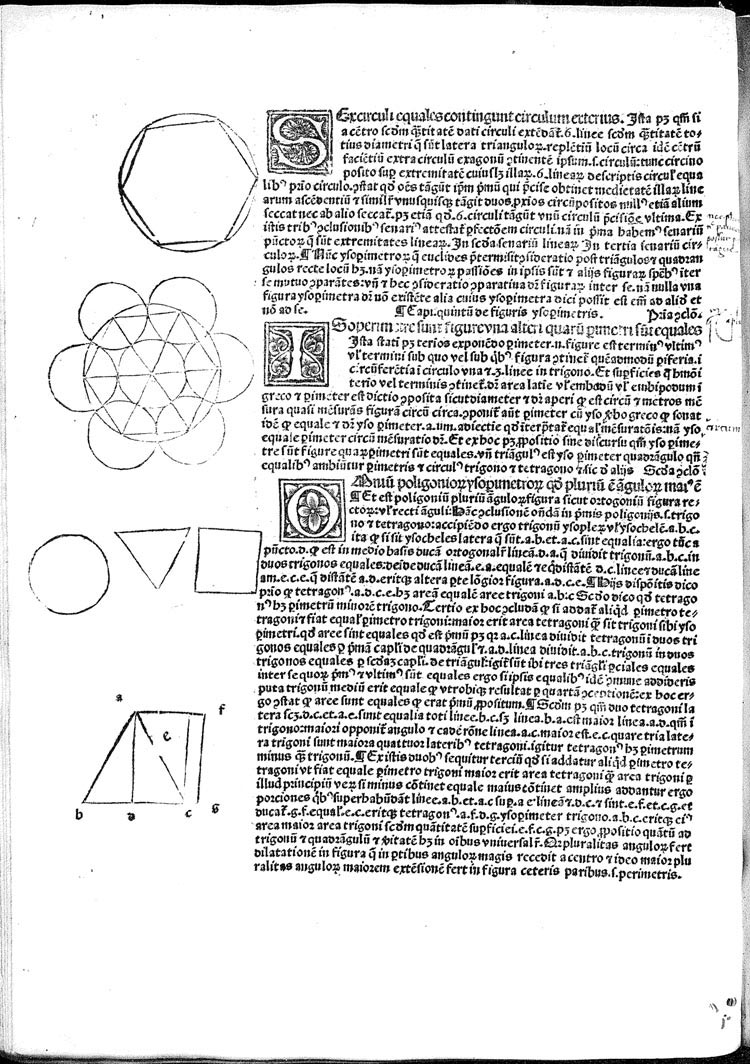 Sexcirculi equales contingunt circulum exterius. Ista pꝫ qm̄ si
a cẽtro scd̃m q̃titatẽ dati circuli extẽdãt̃.6.linee scd̃m q̃titatẽ to⸗
tius diametri q̃ sũt latera triangulorꝝ.repletiũ locũ circa idẽ cẽtrũ
faciẽtiũ extra circulũ exagonũ ꝯtinentẽ ipsum.s.circulũ:tunc circino
posito suꝑ extremitatẽ cuiuslꝫ illaꝝ.6.linearꝝ descriptis circulꝭ equa
libꝰ p̃rio circulo.ꝯstat qd̃ oẽs tãgũt ip̃m p̃mũ qui p̃cise obtinet medietatẽ illaꝝ line
arum ascẽdentiũ ⁊ similr̃ vnusquisqꝫ tãgit duos.ꝓxios circũpositos nullꝰ etiã alium
seccat nec ab alio seccat̃.pꝫ etiã qd̃.6.circuli tãgũt vnũ circulũ p̃cisiõe vltima.Ex
istis tribꝰ ꝯclusionibꝰ senariꝰ attestat̃ ꝑfectõem circuli.nã in p̃ma habemꝰ senariũ
pũctorꝝ q̃ sũt extremitates linearꝝ.In scd̃a senariũ linearꝝ In tertia senariũ cir⸗
culoꝝ.¶Nũc ysoꝑimetrorꝝ q̃ euclides p̃termisit ꝯsideratio post triãgulos ⁊ quadran
gulos recte locũ hꝫ.nã ysoꝑimetrorꝝ passiões in ipsis sũt ⁊ alijs figuraꝝ spẽbꝰ iter
se mutuo ꝯparãtes:vñ ⁊ hec ꝯsideratio ꝯparatiua dr̃ figurarꝝ inter se.nã nulla vna
figura ysoꝑimetra dr̃ nõ existẽte alia cuius ysoꝑimetra dici possit est em̃ ad aliqd̃ et
nõ ad se. ¶Capi.quintũ de figuris ysoꝑimetris. P̃ria ꝯclõ.
Isoperimetre sunt figure vna alteri quarũ ꝑimetri sũt equales
Ista stati pꝫ terĩos exponẽdo ꝑimeter.n.figure est terminꝰ vltimꝰ
vl̃ termini sub quo vel sub qbꝰ figura ꝯtinet̃ quẽadmodũ piferia.i
circũferẽtia i circulo vna ⁊.3.linee in trigono. Et suꝑficies q̃ hmõi
terĩo vel terminis ꝯtinet̃.dr̃ area latie vl̃ embadũ vl̃ embipodum i
greco ⁊ ꝑimeter est dictio ꝯposita sicut diameter ⁊ dr̃ a peri qꝭ est circũ ⁊ metros mẽ
sura quasi mẽsurãs figurã circũ circa.ꝯponit̃ aũt ꝑimeter cũ yso ꝟbo greco qꝭ sonat
idẽ qꝭ equale ⁊ dr̃ yso ꝑimeter.a.um.adiectie qd̃ iterp̃tat̃ equalꝭ mẽsuratẽis:nã yso
equale ꝑimeter circũ mẽsuratio dr̃. Et ex hoc pꝫ.ꝓpositio sine discursu qm̃ yso ꝑime⸗
tre sũt figure quarꝝ ꝑimetri sũt equales.vñ triãgulꝰ est yso ꝑimeter quadrãgulo qñ
equalibꝰ ambiũtur ꝑimetris ⁊ circulꝰ trigono ⁊ tetragono ⁊ sic d̃ alijs Scd̃a ꝯclõ
Omniũ poligoniorꝝ ysoꝑimetrorꝝ qd̃ pluriũ ẽ ãgulorꝝ maiꝰ ẽ
¶Et est poligoniũ pluriũ ãgulorꝝ figura sicut ortogoniũ figura re⸗
ctorꝝ vl̃ recti ãguli:Hãc ꝯclusionẽ ondã in p̃mis poligonijs.s.trigo
no ⁊ tetragono:accipiẽdo ergo trigonũ ysoplerꝝ vl̃ ysochelẽ.a.b.c.
ita qꝭ si sit ysocheles latera q̃ sũt.a.b.et.a.c.sint equalia:ergo tũc a
pũcto.d.qꝭ est in medio basis ducã ortogonalr̃ lineã.d.a.q̃ diuidit trigonũ.a.b.c.in
duos trigonos equales:deide ducã lineã.e.a.equalẽ ⁊ eqdistãtẽ .d.c.linee ⁊ ducã line
am.e.c.e.q̃ distãtẽ a.d.eritqꝫ altera ꝑte lõgior figura.a.d.c.e.¶Hijs dispõitis dico
p̃rio qꝭ tetragonꝰ.a.d.c.e.hꝫ areã equalẽ aree trigoni a.b.c Scd̃o dico qd̃ tetrago
nꝰ hꝫ ꝑimetrũ minorẽ trigono.Tertio ex hoc ꝯcludã qꝭ si addat̃ aliqd̃ ꝑimetro te⸗
tragoni ⁊ fiat equalꝭ ꝑimetro trigoni:maior erit area tetragoni qꝭ sit trigoni sibi yso
ꝑimetri.qd̃ aree sint equales qd̃ est p̃mũ pꝫ qꝛ a.c.linea diuidit tetragonũ i duos tri
gonos equales ꝑ p̃mã capl̃i de quadrãgulꝭ ⁊.a.d.linea diuidit.a.b.c.trigonũ in duos
trigonos equales ꝑ scd̃aꝫ capl̃i.de triãgulꝭ:igit̃ sũt ibi tres triãgl̃i ꝑciales equales
inter se quorꝝ p̃mꝰ ⁊ vltimꝰ sũt equales ergo si ipsis equalibꝰ idẽ ꝯmune addideris
puta trigonũ mediũ erit equale qꝭ vtrobiqꝫ resultat ꝑ quartã ꝯceptionẽ:ex hoc er⸗
go ꝯstat qꝭ aree sunt equales qꝭ erat p̃mũ ꝓpositum.¶Scd̃m pꝫ qm̃ duo tetragoni la
tera scꝫ.d.c.et.a.e.sunt equalia toti linee.b.c.sꝫ linea.b.a.est maior linea.a.d.qm̃ i
trigono:maiori opponit̃ angulo ⁊ eadẽ rõne linea.a.c.maior est.e.c.quare tria late⸗
ra trigoni sunt maiora quattuor lateribꝰ tetragoni.igitur tetragonꝰ hꝫ ꝑimetrum
minus q̃ trigonũ.¶Ex istis duobꝰ sequitur terciũ qd̃ si addatur aliqd̃ ꝑimetro te⸗
tragoni vt fiat equale ꝑimetro trigoni maior erit area tetragoni qꝭ area trigoni ꝑ
illud principiũ ver̃ si minus cõtinet equale maius cõtinet amplius addantur ergo
porciones qbꝰ superhabũdãt linee.a.b.et.a.c suꝑ.a e lineã ⁊.d.c.⁊ sint.e.f.et.c.g.et
ducat̃.g.f.equal.e.c.eritqꝫ tetragonꝰ.a.f.d.g.ysoꝑimeter trigono.a.b.c.eritqꝫ eiꝰ
area maior area trigoni scd̃m quãtitatẽ suꝑficiei.e.f.c.g.pꝫ ergo ꝓpositio quãtũ ad
trigonũ ⁊ quadrãgulũ ⁊ ꝟitatẽ hꝫ in oĩbus vniversalr̃.Qꝛ pluralitas angulorꝝ fert
dilatationẽ in figura q̃ in ꝑtibus angulorꝝ magis recedit a centro ⁊ ideo maior plu
ralitas angulorꝝ maiorem extẽsionẽ fert in figura ceteris paribus.s.perimetris.
circum
a f
e
b d c g